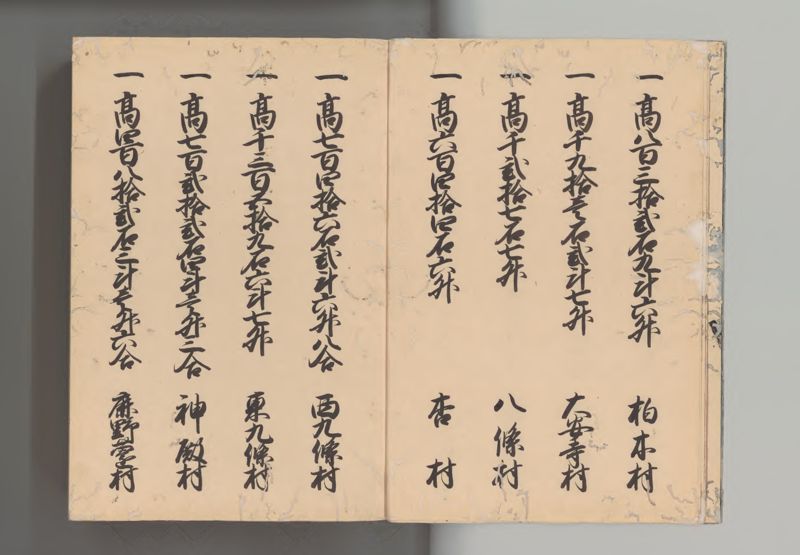 一 高八百三拾弐石九斗六升 柏木村
一 高千九拾壱石弐斗七升 大安寺村
一 高千弐拾七石七升 八條村
一 高六百四拾四石六升 杏村
一 高七百四拾六石弐斗六升八合 西九條村
一 高千三百五拾九石六斗七升 東九條村
一 高七百弐拾弐石四斗壱升二合 神殿村
一 高四百八拾弐石二斗壱升六合 麻野堂村